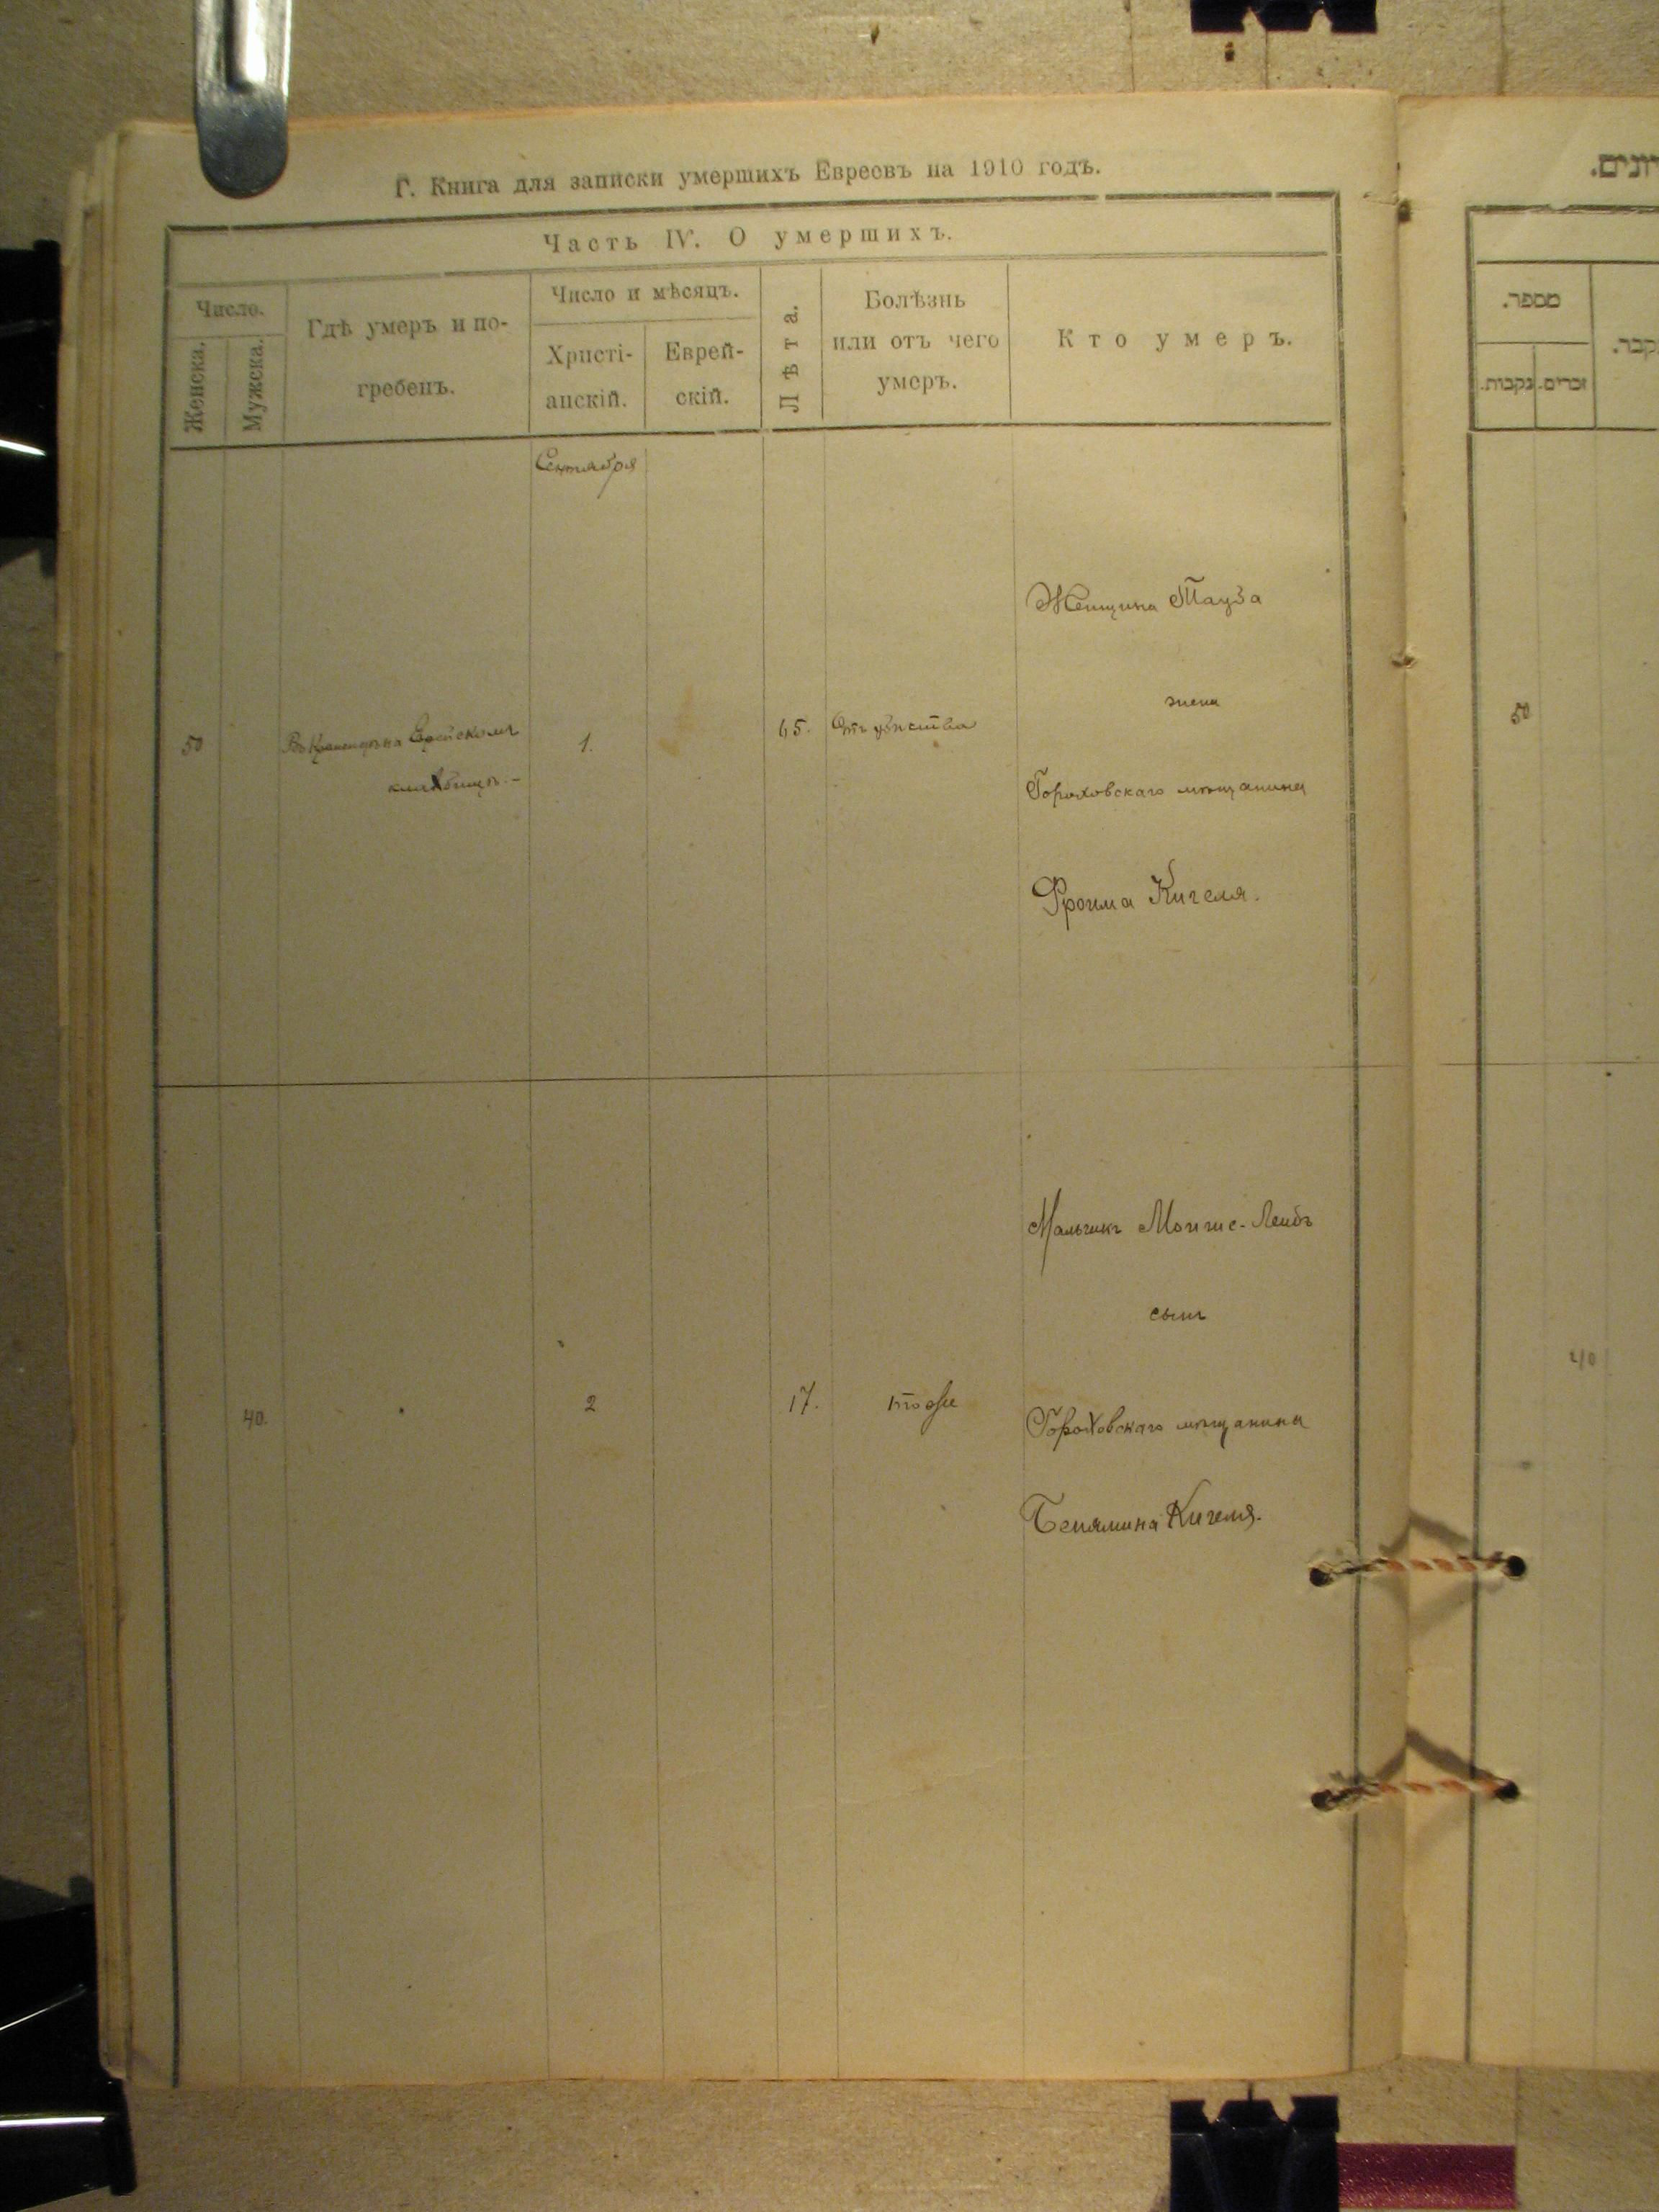 Г. Книга для записки умершихъ Евреевъ на 1910 годъ.
Часть IV. О умершихъ.
Число.
Женска.
Мужска.
Гдѣ умеръ и по-
гребенъ.
Число и мѣсяцъ.
Христі-
анскій.
Еврей-
скій.
Лѣта.
Болѣзнь
или отъ чего
умеръ.
Кто умеръ.
Сентября
50
на Еврейскомъ
кладбищѣ. -
1.
65.
Женщина Тауба
жена
Гороховскаго мѣщанина
Фроима Кигеля.
40.
2
17.
тоже
Мальчикъ Мойше-Лейбъ
сынъ
Гороховскаго мѣщанина
Бенямина Кигеля.
מספר.
נקבות.
זכרים.
50
40